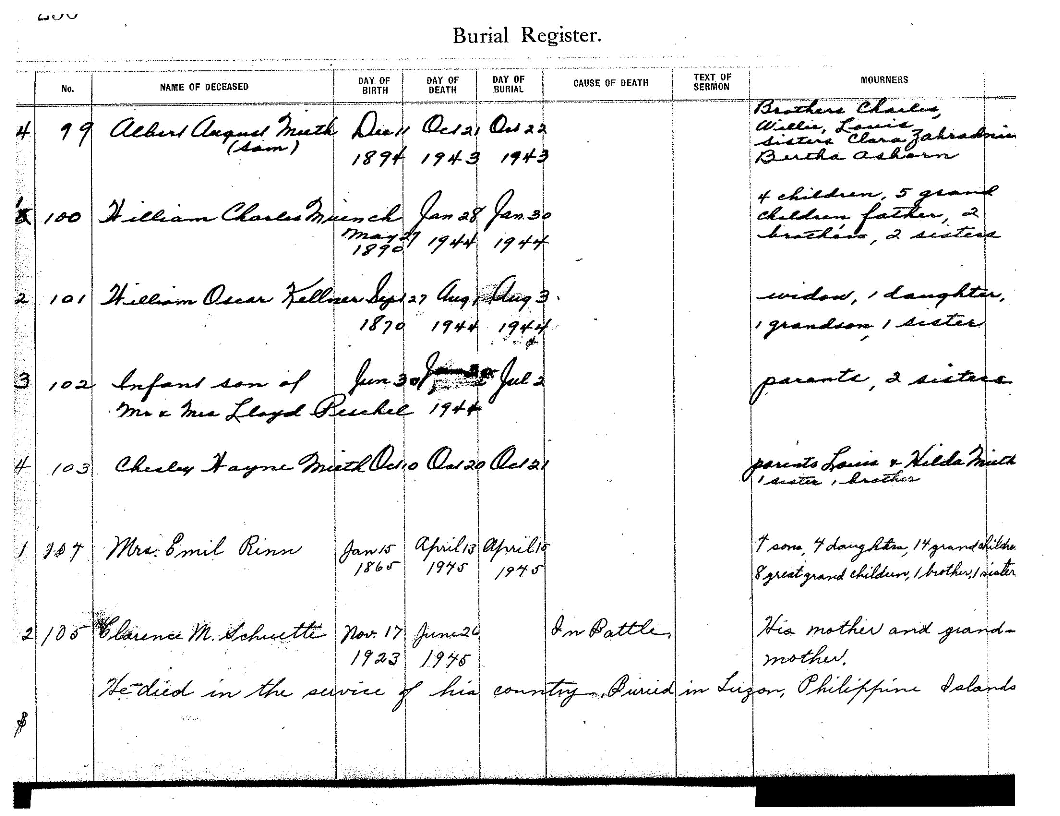 Burial Register.
No. NAME OF DECEASED DAY OF BIRTH DAY OF DEATH DAY OF BURIAL CAUSE OF DEATH TEXT OF SERMON MOURNERS
4 99 Albert August Mieth Dec 11 Oct 21 Oct 22 Brothers Charles,
(Sam) 1894 1943 1943 Willie, Louis
sisters Clara Zabradnic
Bertha Ashorn
100 William Charles Muench Jan 28 Jan 30 4 children, 5 grand
May 27 1944 1944 children father, 2
1890 brothers, 2 sisters
2 101 William Oscar Kellner Sept 27 Aug 1 Aug 3 widow, 1 daughter,
1870 1944 1944 1 grandson, 1 sister
3 102 Infant son of Jun 30 Jul 2 parents, 2 sisters
Mr & Mrs Lloyd Peschel 1944
4 103 Chesley Wayne Mieth Oct 10 Oct 20 Oct 21 parents Louis & Hilda Mieth
1 sister 1 brother
1 104 Mrs. Emil Rinn Jan 15 April 13 April 15 4 sons, 4 daughters, 14 grandchildre
1865 1945 1945 8 great grand children, 1 brother, 1 sister
2 105 Clarence M. Schuette Nov. 17 June 26 In Battle, His mother and grand-
1923 1945 mother.
He died in the service of his country. Buried in Luzon, Philippine Islands